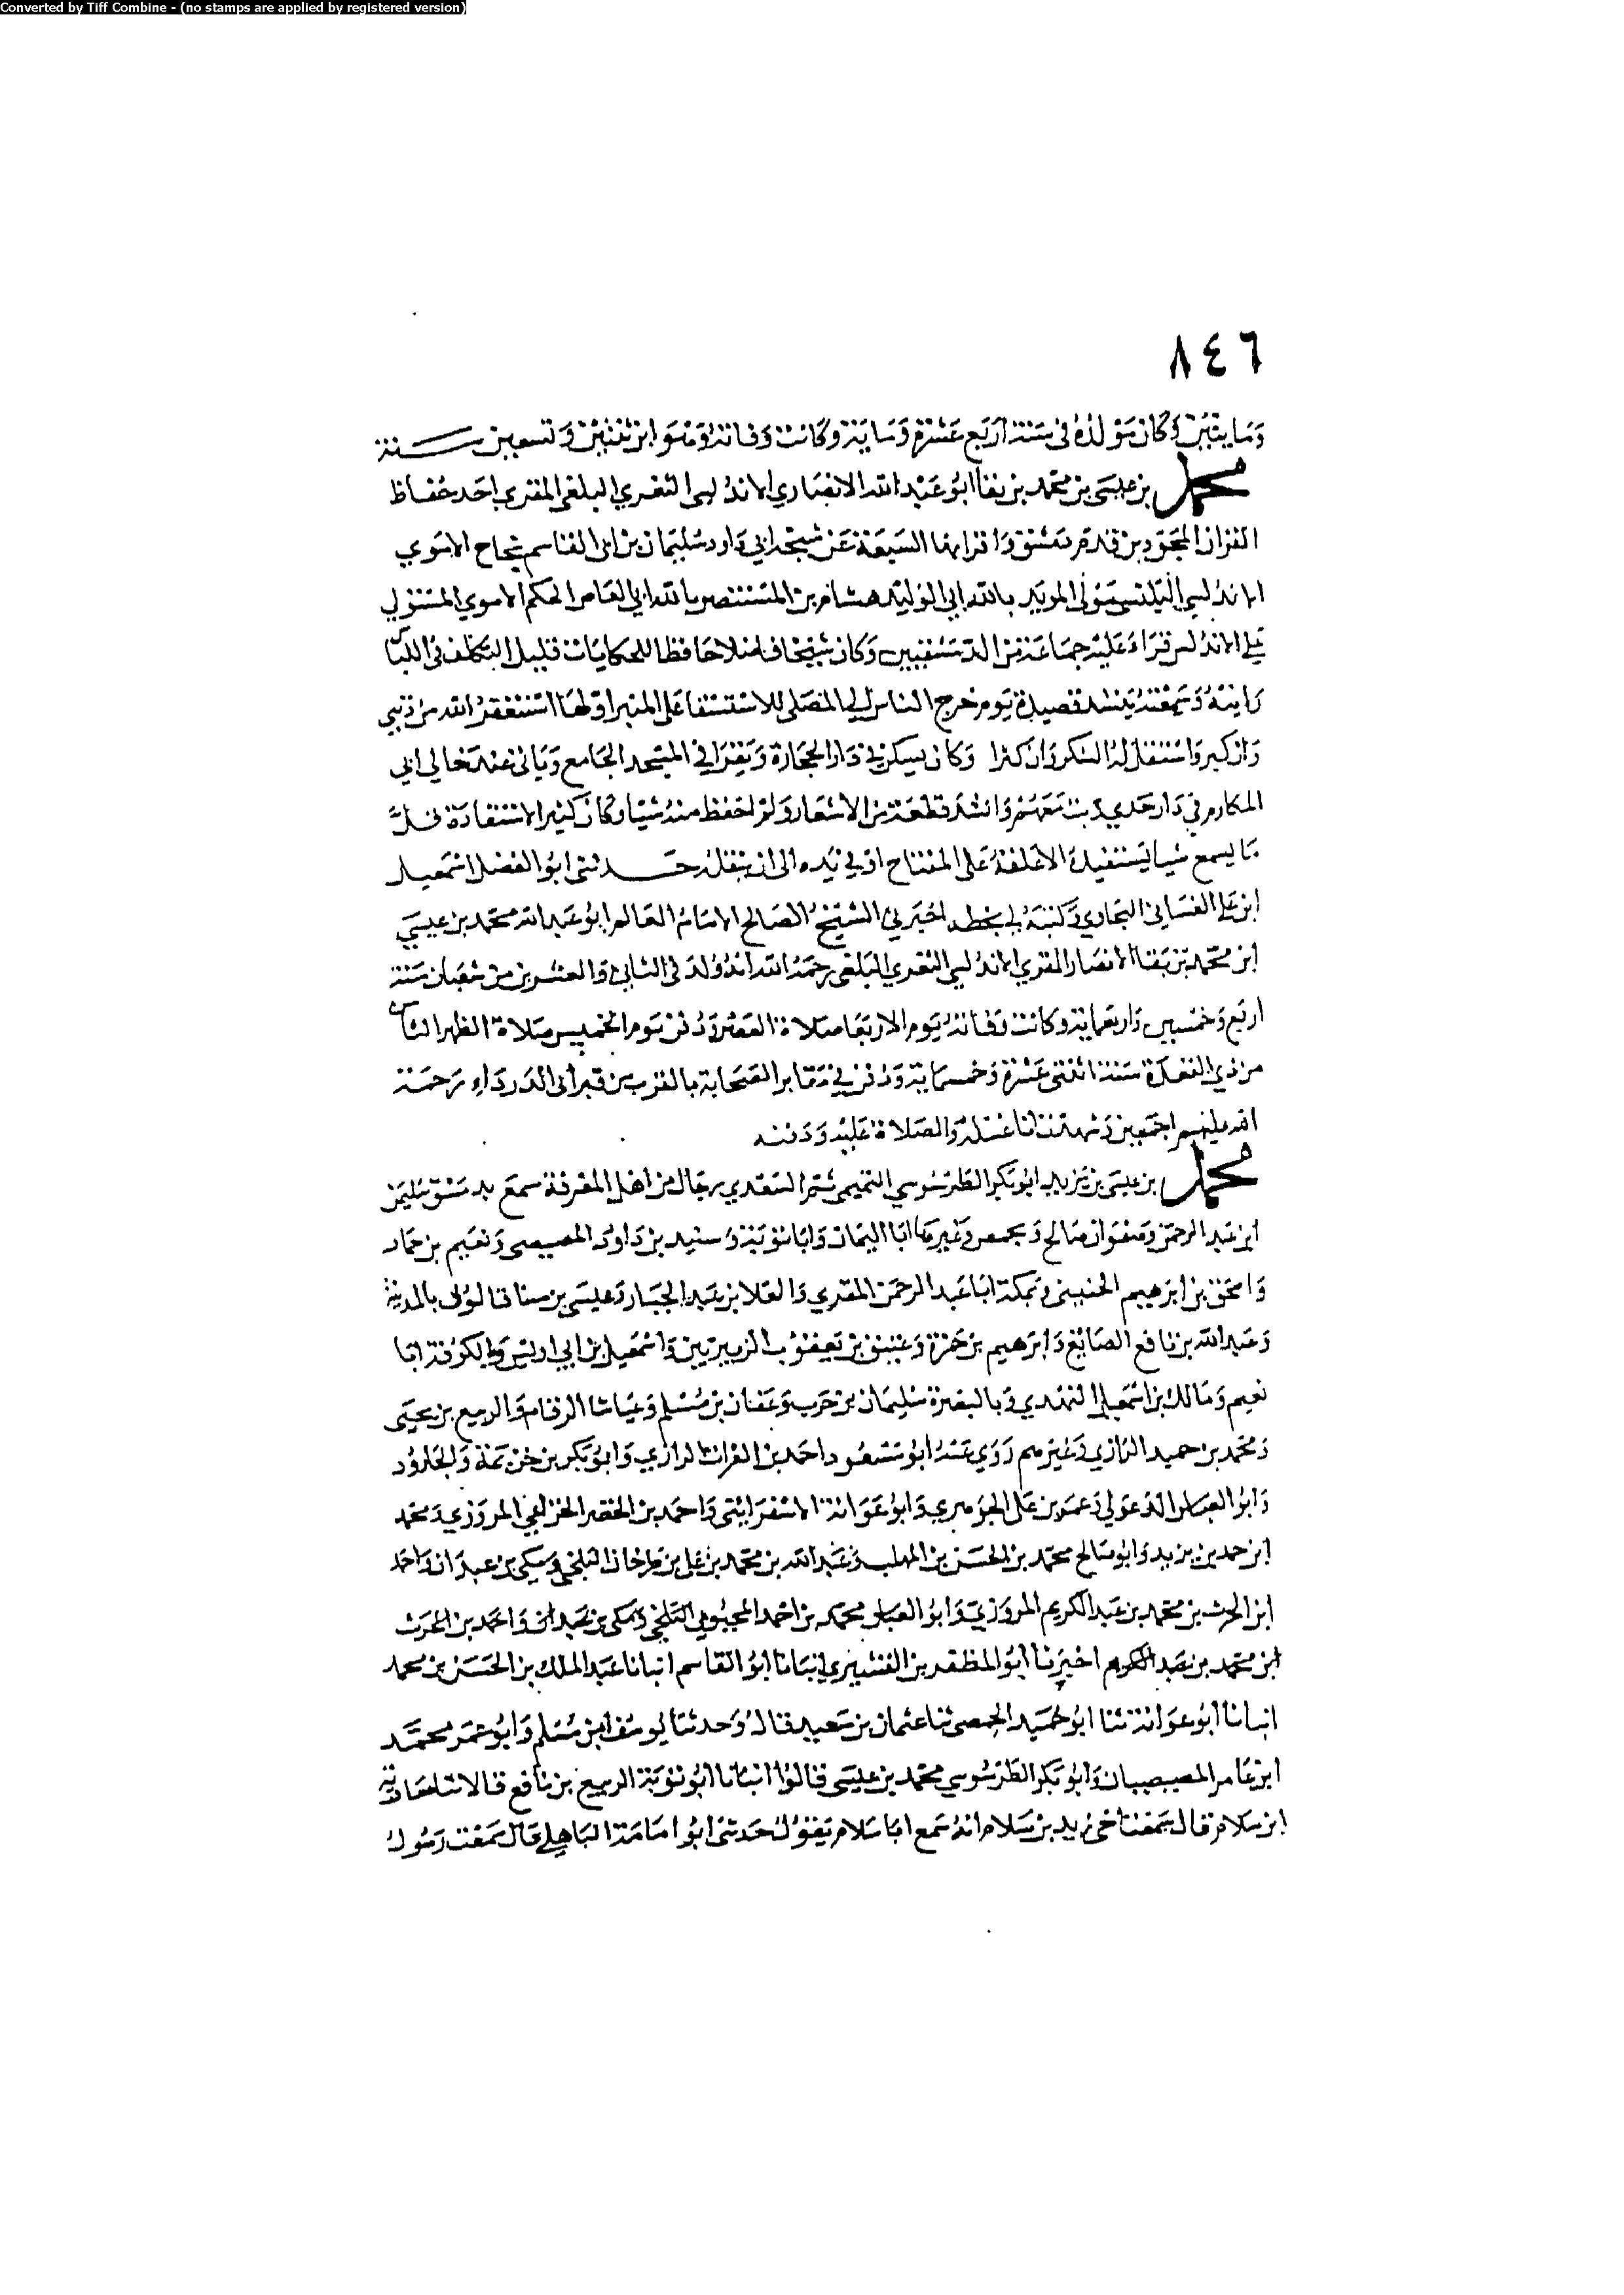 Converted by Tiff Combine - (no stamps are applied by registered version)
٨٤٦
ومايتين وكان مولده في سنة اربع عشرة ومايه وكانت وفاته وهو ابن ثنتين وتسعين سنة
محمد بن عيسى بن محمد بن بقا ابو عبد الله الانصاري الاندلسي الثغري البلغي المقري احد حفاظ
القران المجودين قدم دمشق واقرا بها السبعة عن شيخه ابي داود سليمان بن ابي القاسم نجاح الاموي
الاندلسي البلنسي مولى المويد بالله ابي الوليد هشام بن المستنصر بالله ابي العاص الحكم الاموي المستولي
على الاندلس قراء عليه جماعة من الدمشقيين وكان شيخا فاضلا حافظا للحكايات قليل التكلف في اللباس
رايته وسمعته ينشد قصيدة يوم خرج الناس الى المصلى للاستسقا على المنبر اولها استغفر الله من ذنبي
وان كبر واستقل له الشكر وان كثرا وكان يسكن في دار الحجارة ويقرا في المسجد الجامع وياتي عند خالي ابي
المكارم في دار جدي وانشد قطعة من الاشعار ولم احفظ منه شيا وكان كثير الاستفادة قل
ما يسمع شيا يستفيده الا علقه على المفتاح او في يده الى ان ينقله حدثني ابو الفضل اسمعيل
ابن علي الغساني وكتبه لي بخطه اخبرني الشيخ الصالح الامام العالم ابو عبد الله محمد بن عيسى
ابن محمد بن بقا الانصار المقري الاندلسي الثغري البلغي رحمه الله انه ولد في الثاني والعشرين من شعبان سنة
اربع وخمسين واربعمايه وكانت وفاته يوم الاربعا صلاة العصر ودفن يوم الخميس صلاة الظهر
من ذي القعدة سنة اثنتي عشرة وخمسمايه ودفن في مقابر الصحابة بالقرب من قبر ابي الدرداء رحمة
الله عليهم اجمعين وشهدت انا غسله والصلاة عليه ودفنه
محمد بن عيسى بن يزيد ابو بكر الطرسوسي التميمي ثم السعدي رحال من اهل المعرفة سمع بدمشق سليمن
ابن عبد الرحمن وصفوان صالح وبحمص وغيرها ابا اليمان وابا توبة وسنيد بن داود المصيصي ونعيم بن حماد
واسحق بن ابرهيم الحنيني وبمكة ابا عبد الرحمن المقري والعلا بن عبد الجبار وعيسى بن مينا قالون بالمدينة
وعبد الله بن نافع الصايغ وابرهيم بن حمزة وعتيق بن يعقوب الزبيريين واسمعيل بن ابي اويس وبالكوفة ابا
نعيم ومالك بن اسمعيل النهدي وبالبصرة سليمان بن حرب وعفان بن مسلم وعياشا الرقام والربيع بن يحيى
ومحمد بن حميد الرازي وغيرهم روى عنه ابو مسعود احمد بن الفرات الرازي وابو بكر بن خزيمة والجارود
وابو العباس الدغولي وعمر بن علي الجوهري وابو عوانة الاسفرايني واحمد بن الخضر المروزي ومحمد
ابن حمدين بن يد وابو صالح محمد بن الحسن بن المهلب وعبد الله بن محمد بن علي بن طرخان البلخي ومكي بن عبدان واحمد
ابن الحرث بن محمد بن عبد الكريم المروزي وابو العباس محمد بن احمد المحبوبي البلخي ومكي بن عبدان واحمد بن الحرث
ابن محمد بن عبد الكريم اخبرنا ابو المظفر بن القشيري انبانا ابو القاسم انبانا عبد الملك بن الحسن بن محمد
انبانا ابو عوانة ثنا ابو حميد الحمصي ثنا عثمان بن سعيد قال وحدثنا يوسف بن مسلم وابو عمر محمد
ابن عامر المصيصيان وابو بكر الطرسوسي محمد بن عيسى قالوا انبانا ابو توبة الربيع بن نافع قالا ثنا معاوية
ابن سلام قال سمعت اخي زيد بن سلام انه سمع ابا سلام يقول حدثني ابو امامة الباهلي قال سمعت رسول